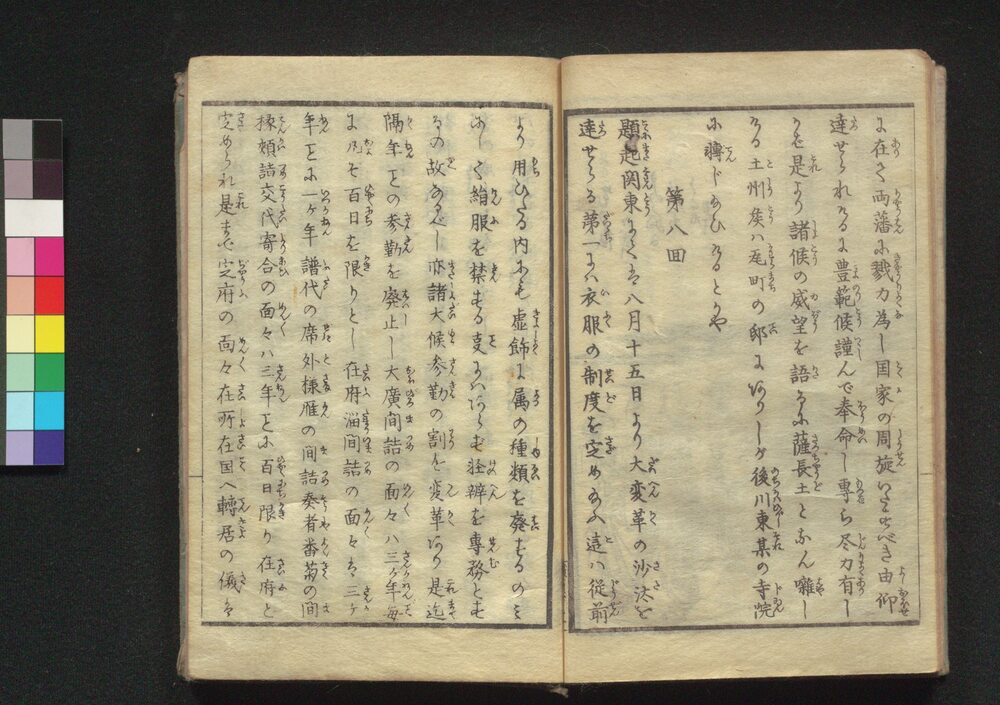 に在て両藩に戮力為し国家の周旋いたすべき由仰
達せられけるに豊範候謹んで奉命し専ら尽力有し
かば是より諸候の威望を語るに薩長土となん囃し
ける土州矦ハ尾町の邸にありしが後川東某の寺院
に轉じ給ひけるとかや
第八回
題起関東にてハ八月十五日より大変革の沙汰を
達せらる第一にハ衣服の制度を定め給ふ這ハ従前
より用ひたる内にも虚飾に属の種類を廃するのミ
にして絹服を禁するにハあらず軽辨を専務とす
るの故なるべし亦諸大候参勤の割を変革あり是迄
隔年との参勤を廃止し大廣間詰の面々ハ三ヶ年毎
に凡そ百日を限りとし在府溜間詰の面々は三ヶ
年とに一ヶ年譜代の席外様雁の間詰奏者番菊の間
椽頬詰交代寄合の面々ハ三年とに百日限り在府と
定められ是まで定府の面々在所在国へ轉居の儀は